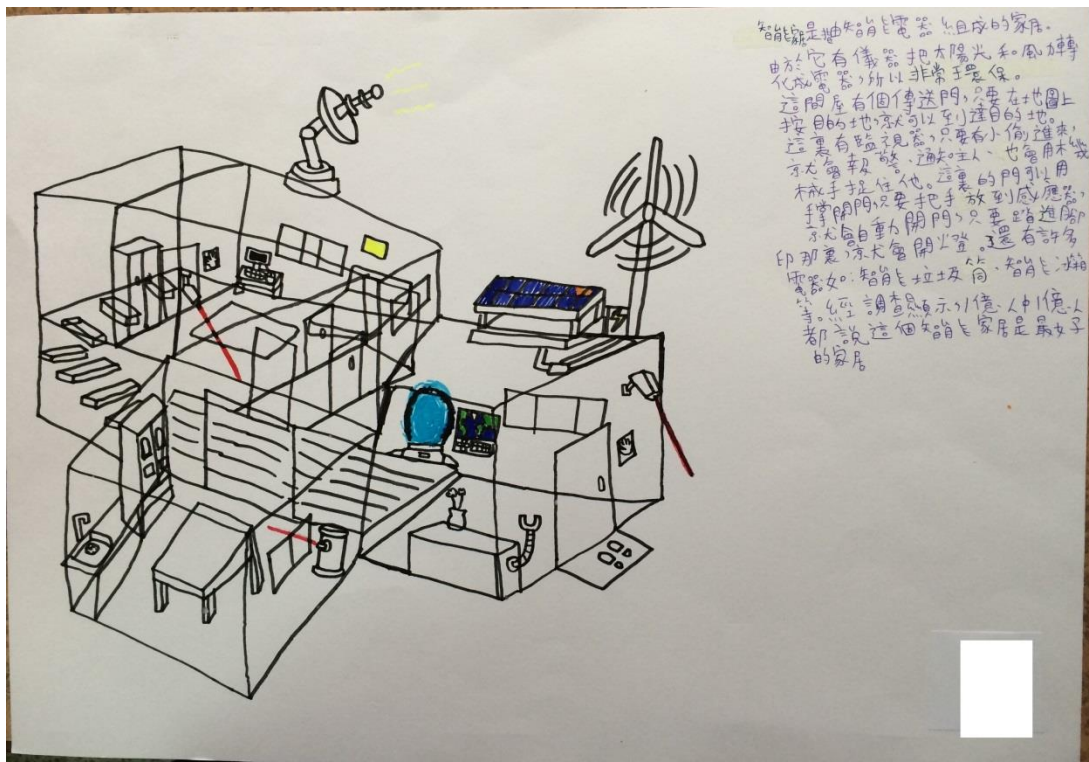 智能家居是由智能電器組成的家居。
由於它有儀器把太陽光和風力轉
化成電器，所以非常環保。
這間屋有個傳送門，只要在地圖上
按目的地，就可以到達目的地。
這裏有監視器，只要有小偷進來，
就會報警、通知主人，也會用機
械手捉住他。這裏的門可以用
手掌開門，只要把手放到感應器，
就會自動開門，只要踏進腳
印那裏，就會開燈。還有許多
電器如：智能垃圾筒、智能冰箱
等。經調查顯示，1億人中1億人
都說這個智能家居是最好
的家居